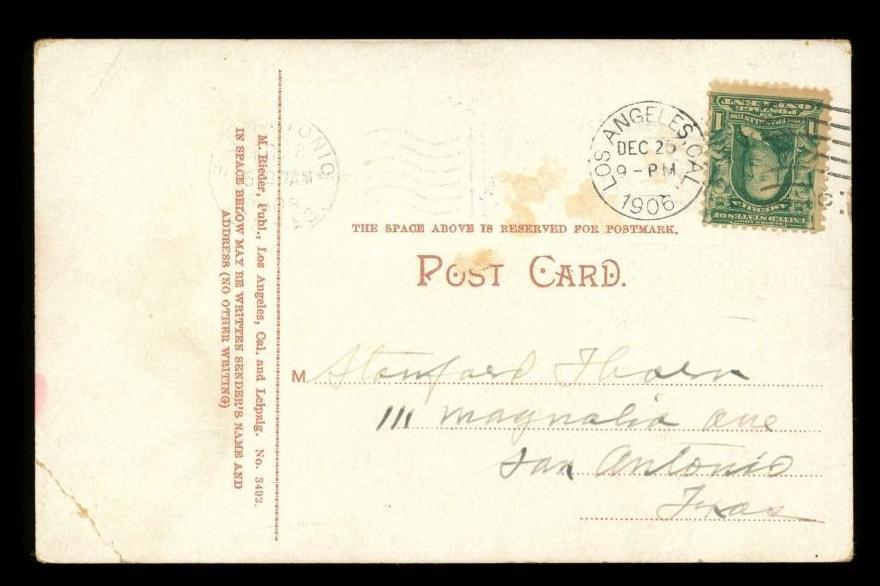 M. Rieder, Publ., Los Angeles, Cal. and Leipzig. No. 3492.
IN SPACE BELOW MAY BE WRITTEN SENDER'S NAME AND
ADDRESS (NO OTHER WRITING)
LOS ANGELES, CAL.
DEC 26
9 - PM
1906
ONE CENT
1 1
THE SPACE ABOVE IS RESERVED FOR POSTMARK.
POST CARD.
M Stanford Thorn
111 Magnolia ave
San Antonio
Texas